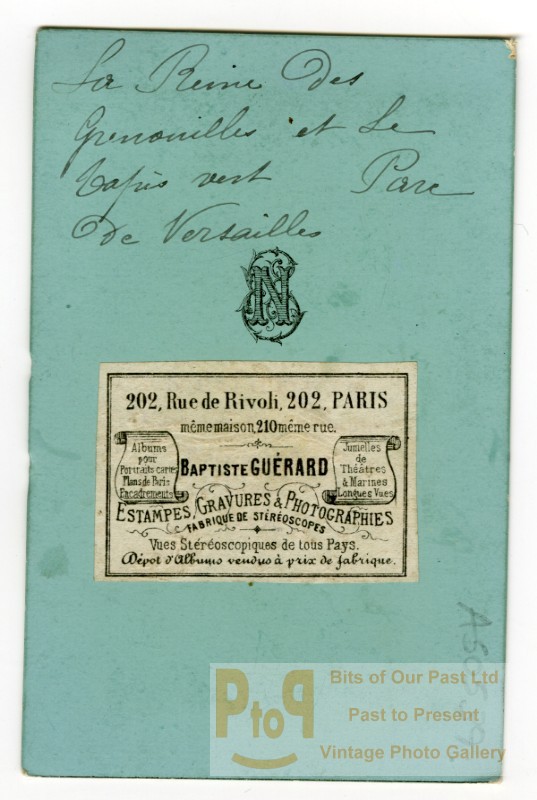 La Reine Des
Grenouilles et Le
tapis vert Parc
De Versailles
N
202, Rue de Rivoli, 202, PARIS
même maison, 210 même rue.
Albums
pour
Portraits cartes
Plans de Paris
Encadrements
BAPTISTE GUÉRARD
Jumelles
de
Théâtres
& Marines
Longues Vues
ESTAMPES, GRAVURES & PHOTOGRAPHIES
FABRIQUE DE STÉRÉOSCOPES
Vues Stéréoscopiques de tous Pays.
Dépot d'Albums vendus à prix de fabrique.
PtoP
Bits of Our Past Ltd
Past to Present
Vintage Photo Gallery